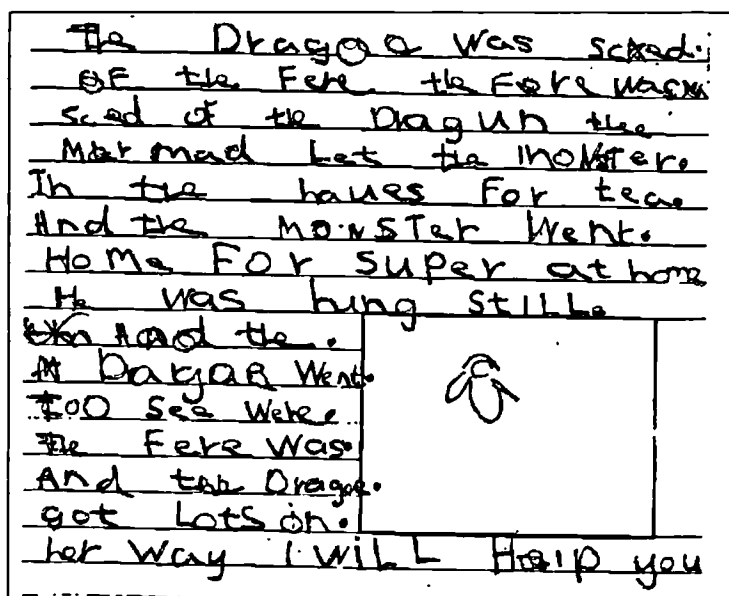 The Dragoo was scked.
OF the Fere the Fore was
sced of the Dragun the
Mer mad Let the MoNSTer.
In the haues For tea.
And the MONSTer Went.
HoMe FOr super at home
He was hung STILL.
And the.
Dagar Went.
TOO See Were.
The Fere Was.
And the Drage.
got Lots on.
her Way I WILL Help you